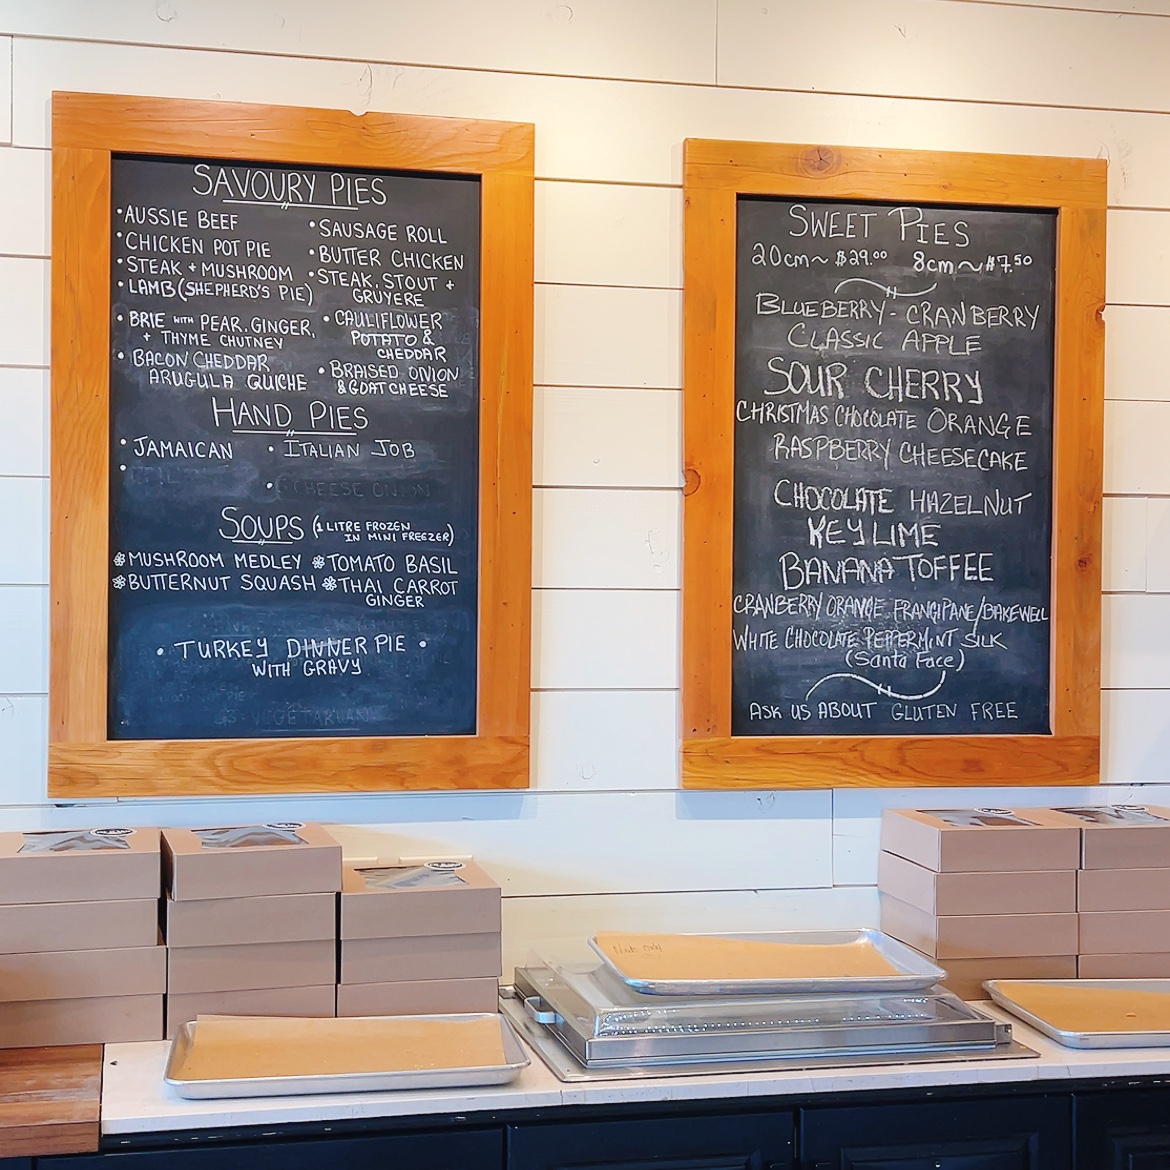 SAVOURY PIES
• AUSSIE BEEF
• CHICKEN POT PIE
• STEAK + MUSHROOM
• LAMB (SHEPHERD'S PIE)
• BRIE WITH PEAR, GINGER,
+ THYME CHUTNEY
• BACON CHEDDAR
ARUGULA QUICHE
• SAUSAGE ROLL
• BUTTER CHICKEN
• STEAK, STOUT +
GRUYERE
• CAULIFLOWER
POTATO &
CHEDDAR
• BRAISED ONION
& GOAT CHEESE
HAND PIES
• JAMAICAN
• ITALIAN JOB
• CHEESE ONION
SOUPS (1 LITRE FROZEN
IN MINI FREEZER)
MUSHROOM MEDLEY
BUTTERNUT SQUASH
TOMATO BASIL
THAI CARROT
GINGER
• TURKEY DINNER PIE •
WITH GRAVY
VEGETARIAN
SWEET PIES
20cm ~ $29.00 8cm ~ $7.50
BLUEBERRY - CRANBERRY
CLASSIC APPLE
SOUR CHERRY
CHRISTMAS CHOCOLATE ORANGE
RASPBERRY CHEESECAKE
CHOCOLATE HAZELNUT
KEY LIME
BANANA TOFFEE
CRANBERRY ORANGE FRANGIPANE/BAKEWELL
WHITE CHOCOLATE PEPPERMINT SILK
(Santa Face)
ASK US ABOUT GLUTEN FREE